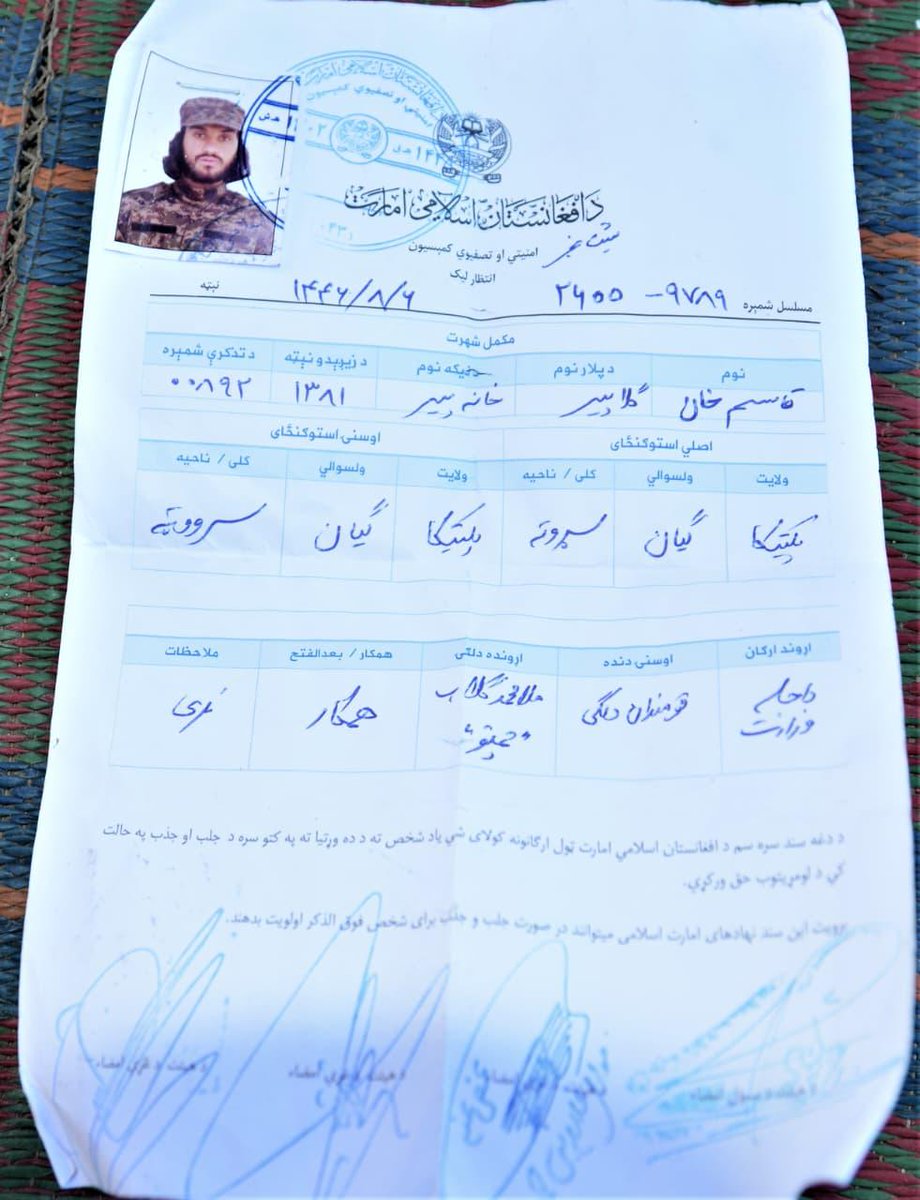 د افغانستان اسلامي امارت
امنیتي او تصفیوي کمېسیون
انتظار لیک
مسلسل شمېره ۹۷۸۹- ۲۶۵۵ نېټه ۱۴۴۶/۸/۶
مکمل شهرت
نوم د پلار نوم د نیکه نوم د زېږېدو نېټه د تذکرې شمېره
قاسم خان ګلا پیر خانه پیر ۱۳۸۱ ۰۰۸۹۲
اصلي استوګنځای اوسنی استوګنځای
ولایت ولسوالي کلی / ناحیه ولایت ولسوالي کلی / ناحیه
پکتیکا ګیان سروټه پکتیکا ګیان سرووټه
اړوند ارګان اوسنی دنده اړونده دلګۍ همکار / بعدالفتح ملاحظات
داخله وزارت قومندان دلګۍ ملا محمد ګلاب همکار
د دغه سند سره سم د افغانستان اسلامي امارت ټول ارګانونه کولای شي یاد شخص ته د ده وړتیا ته په کتو سره د جلب او جذب په حالت
کې د لومړیتوب حق ورکړي.
برویت این سند نهادهای امارت اسلامی میتوانند در صورت جلب و جذب برای شخص فوق الذکر اولویت بدهند.
د هیئت د مسئول امضاء د هیئت د غړي امضاء د هیئت د غړي امضاء د هیئت د غړي امضاء